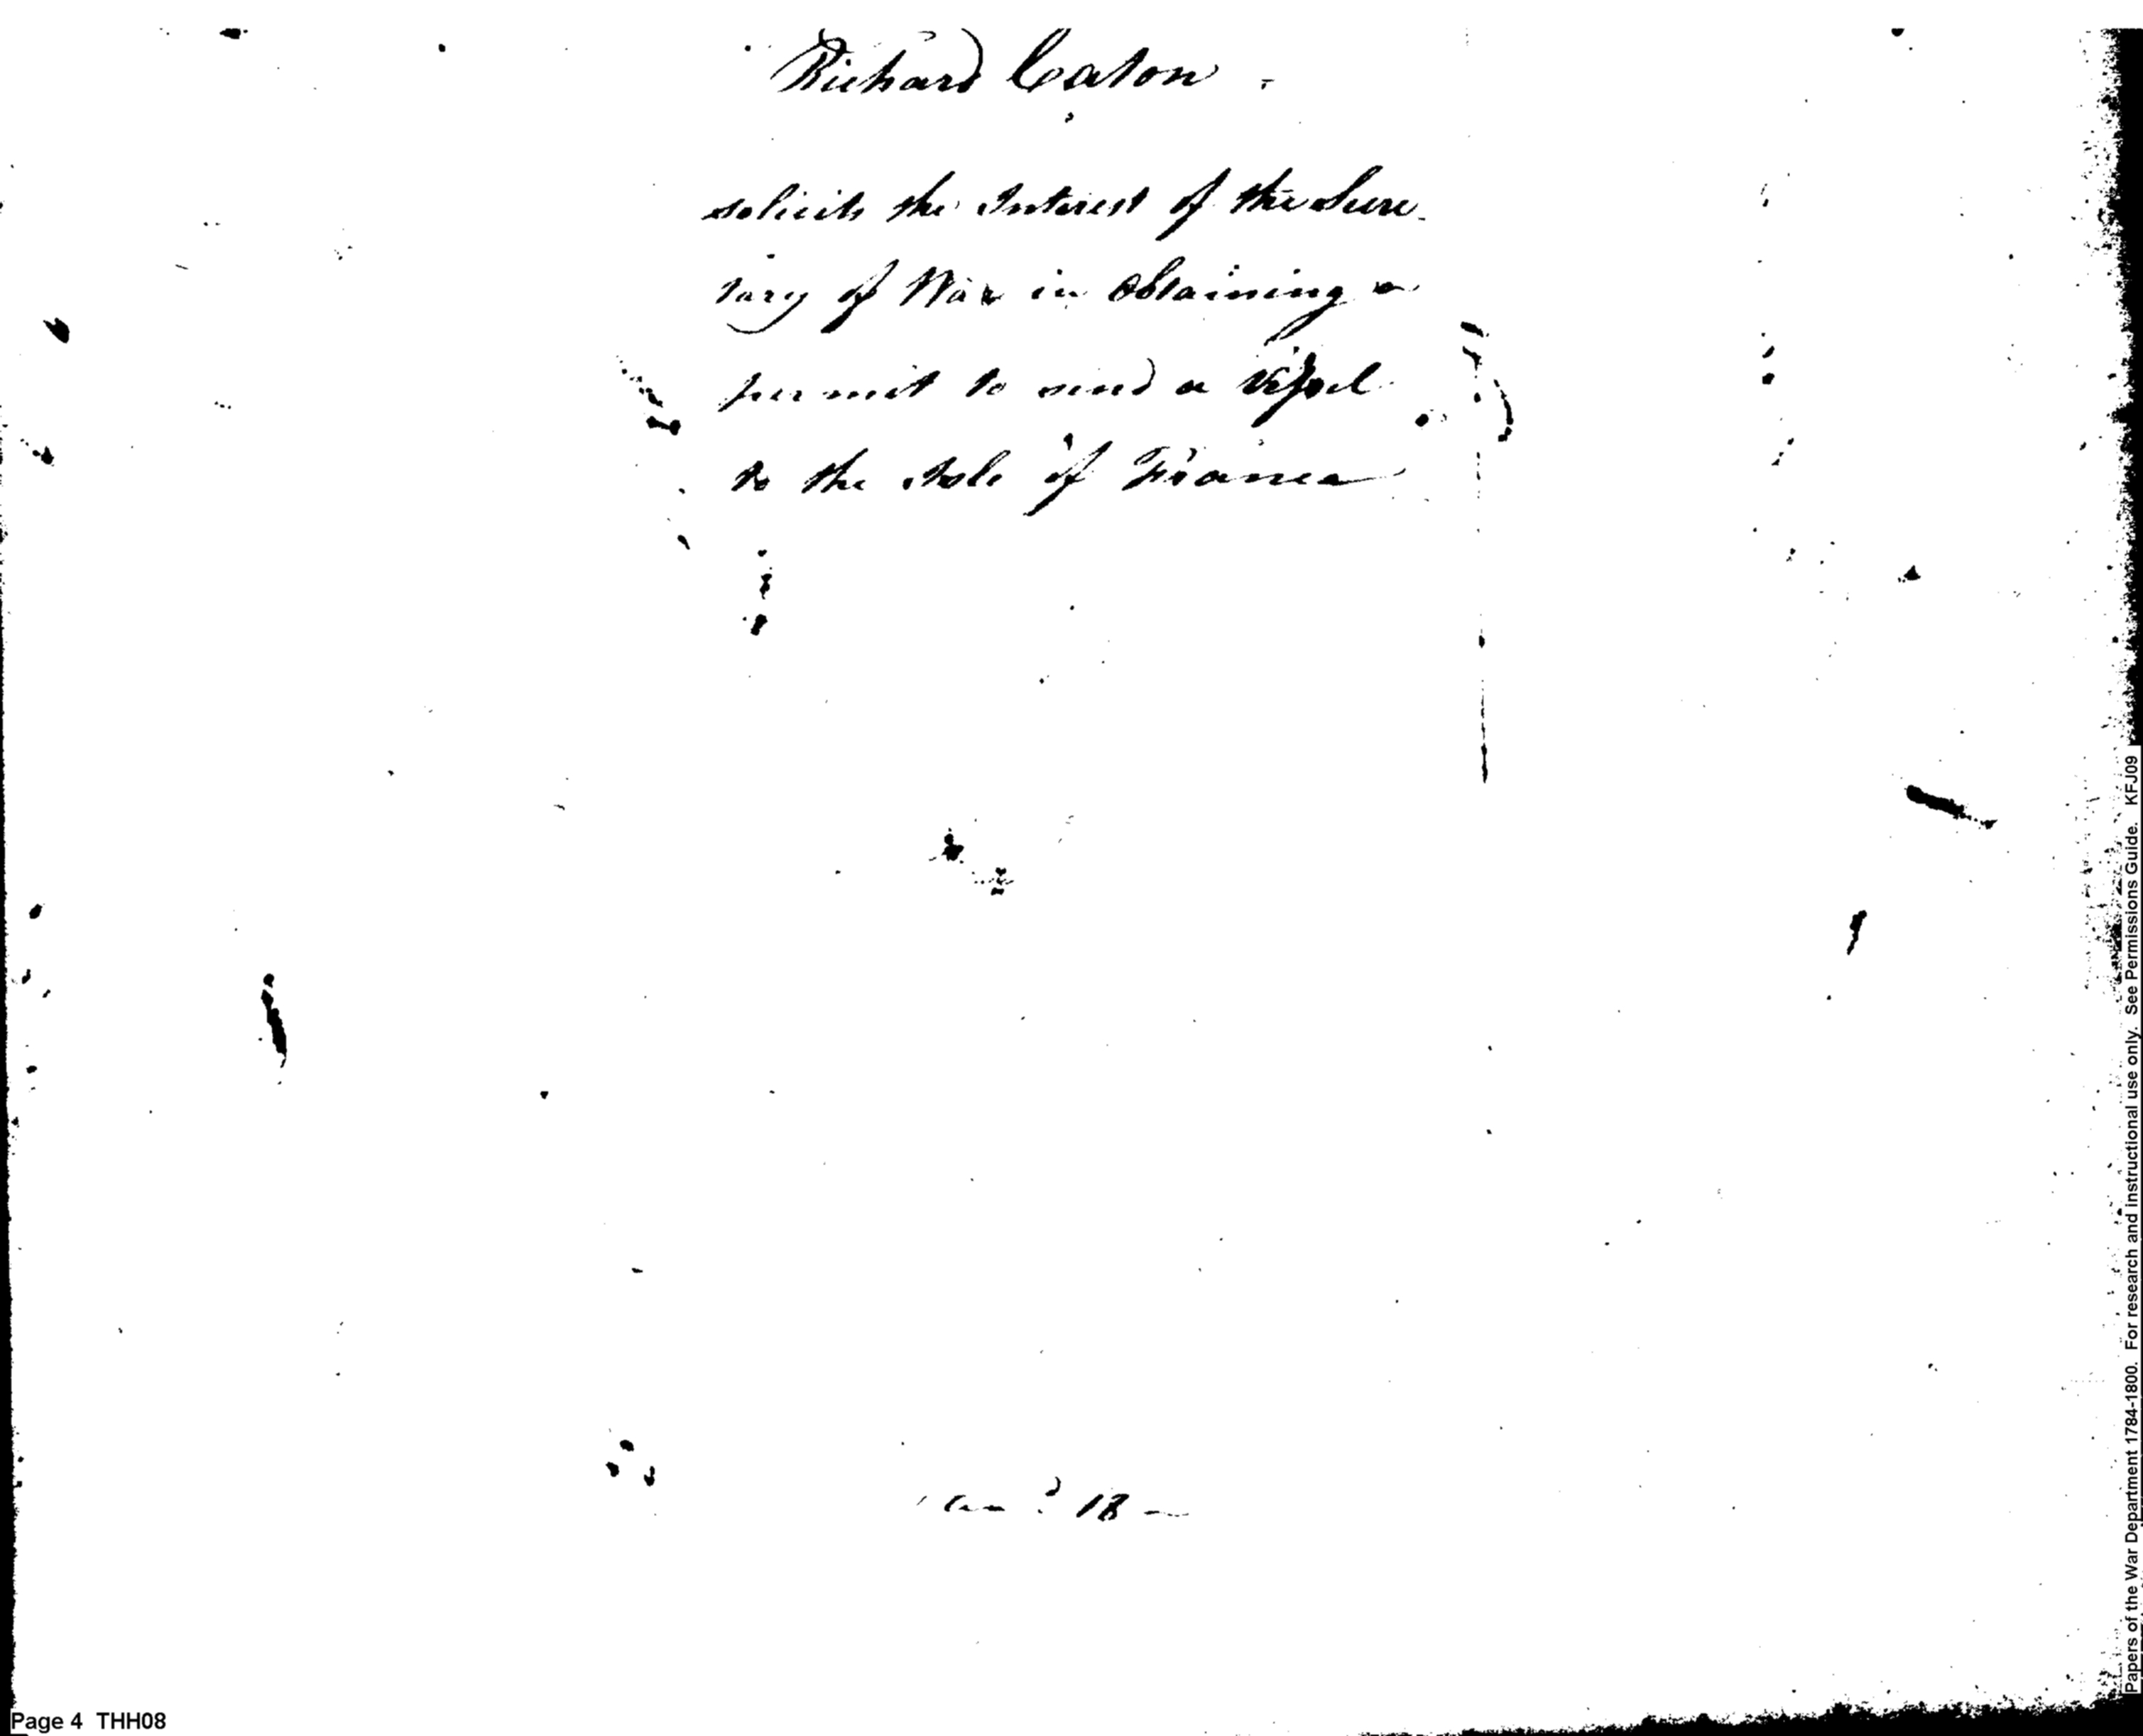 Richard Caton.
solicits the Interest of the Secre-
tary of War in obtaining a
permit to send a vessel
to the Isle of France
18
Page 4 THH08
Papers of the War Department 1784-1800. For research and instructional use only. See Permissions Guide. KFJ09